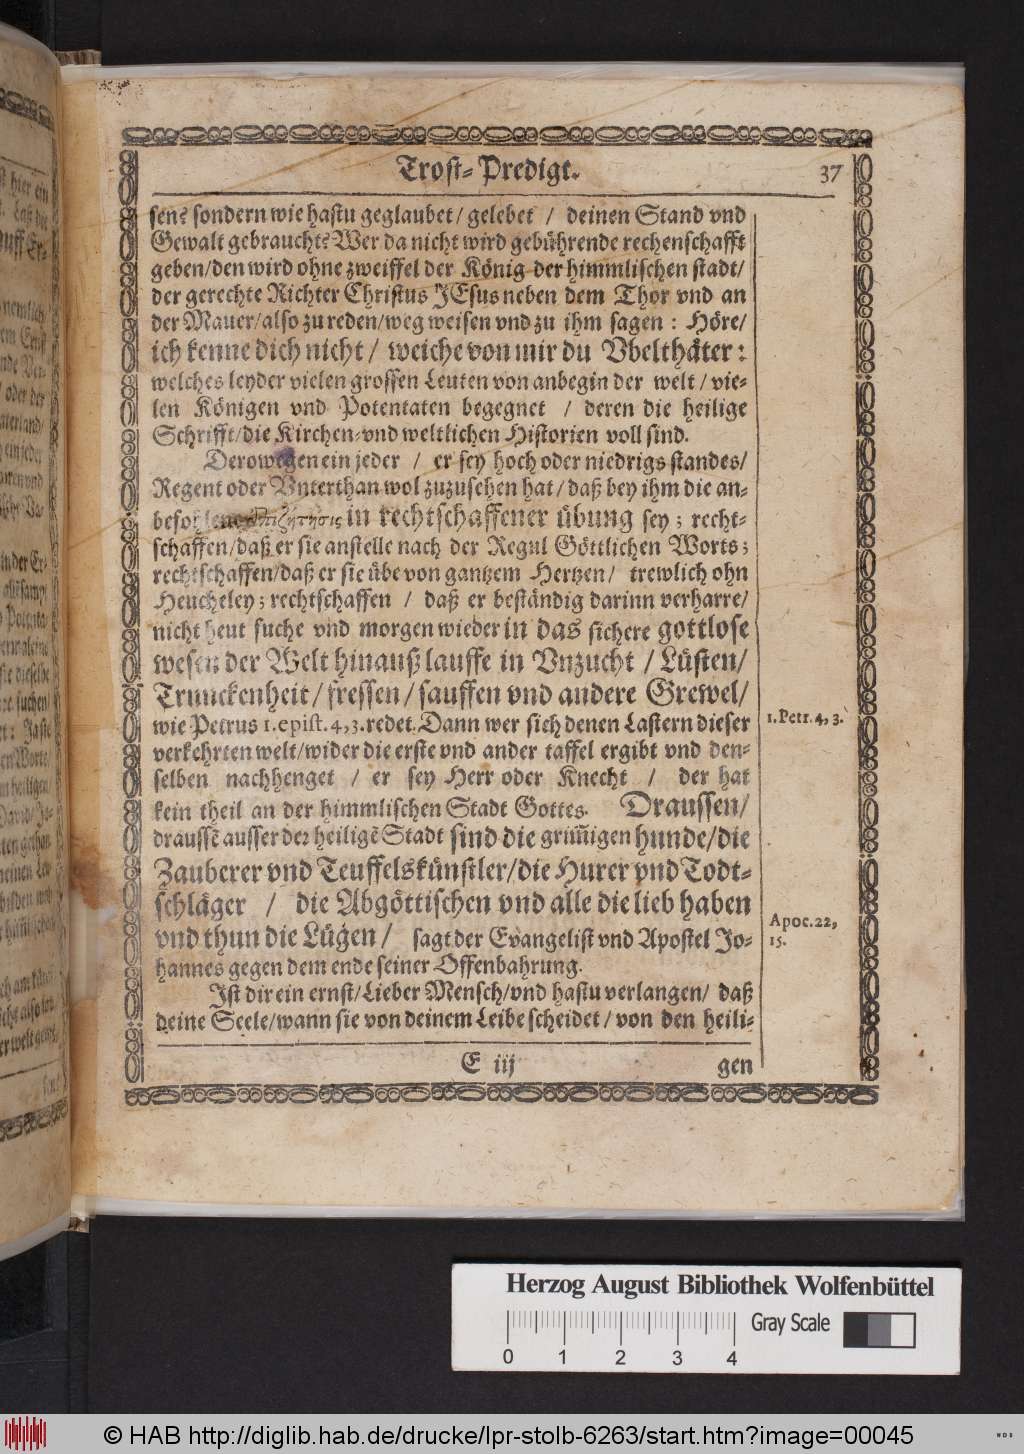 Trost-Predigt. 37
sen? sondern wie hastu geglaubet/ gelebet / deinen Stand vnd
Gewalt gebraucht? Wer da nicht wird gebührende rechenschafft
geben/den wird ohne zweiffel der König der himmlischen stadt/
der gerechte Richter Christus JEsus neben dem Thor vnd an
der Mauer/also zu reden/weg weisen vnd zu ihm sagen : Höre/
ich kenne dich nicht/ weiche von mir du Vbelthäter:
welches leyder vielen grossen Leuten von anbegin der welt/ vie-
len Königen vnd Potentaten begegnet / deren die heilige
Schrifft/die Kirchen-vnd weltlichen Historien voll sind.
Derowegen ein jeder / er sey hoch oder niedrigs standes/
Regent oder Vnterthan wol zuzusehen hat/ daß bey ihm die an-
befohlene in rechtschaffener übung sey; recht-
schaffen/daß er sie anstelle nach der Regul Göttlichen Worts;
rechtschaffen/daß er sie übe von gantzem Hertzen/ trewlich ohn
Heucheley; rechtschaffen / daß er beständig darinn verharre/
nicht heut suche vnd morgen wieder in das sichere gottlose
wesen der Welt hinauß lauffe in Vnzucht / Lüsten/
Trunckenheit/ fressen/ sauffen vnd andere Grewel/
wie Petrus 1. epist. 4, 3. redet. Dann wer sich denen Lastern dieser
1. Petr. 4, 3.
verkehrten welt/wider die erste vnd ander taffel ergibt vnd den-
selben nachhenget / er sey Herr oder Knecht / der hat
kein theil an der himmlischen Stadt Gottes. Draussen/
draussẽ ausser der heiligẽ Stadt sind die grim̃igen hunde/die
Zauberer vnd Teuffelskünstler/die Hurer vnd Todt-
schläger / die Abgöttischen vnd alle die lieb haben
Apoc. 22,
vnd thun die Lügen/ sagt der Evangelist vnd Apostel Jo-
15.
hannes gegen dem ende seiner Offenbahrung.
Ist dir ein ernst/Lieber Mensch/vnd hastu verlangen/ daß
deine Seele/wann sie von deinem Leibe scheidet/ von den heili-
E iij gen
Herzog August Bibliothek Wolfenbüttel
Gray Scale
0 1 2 3 4
© HAB http://diglib.hab.de/drucke/lpr-stolb-6263/start.htm?image=00045